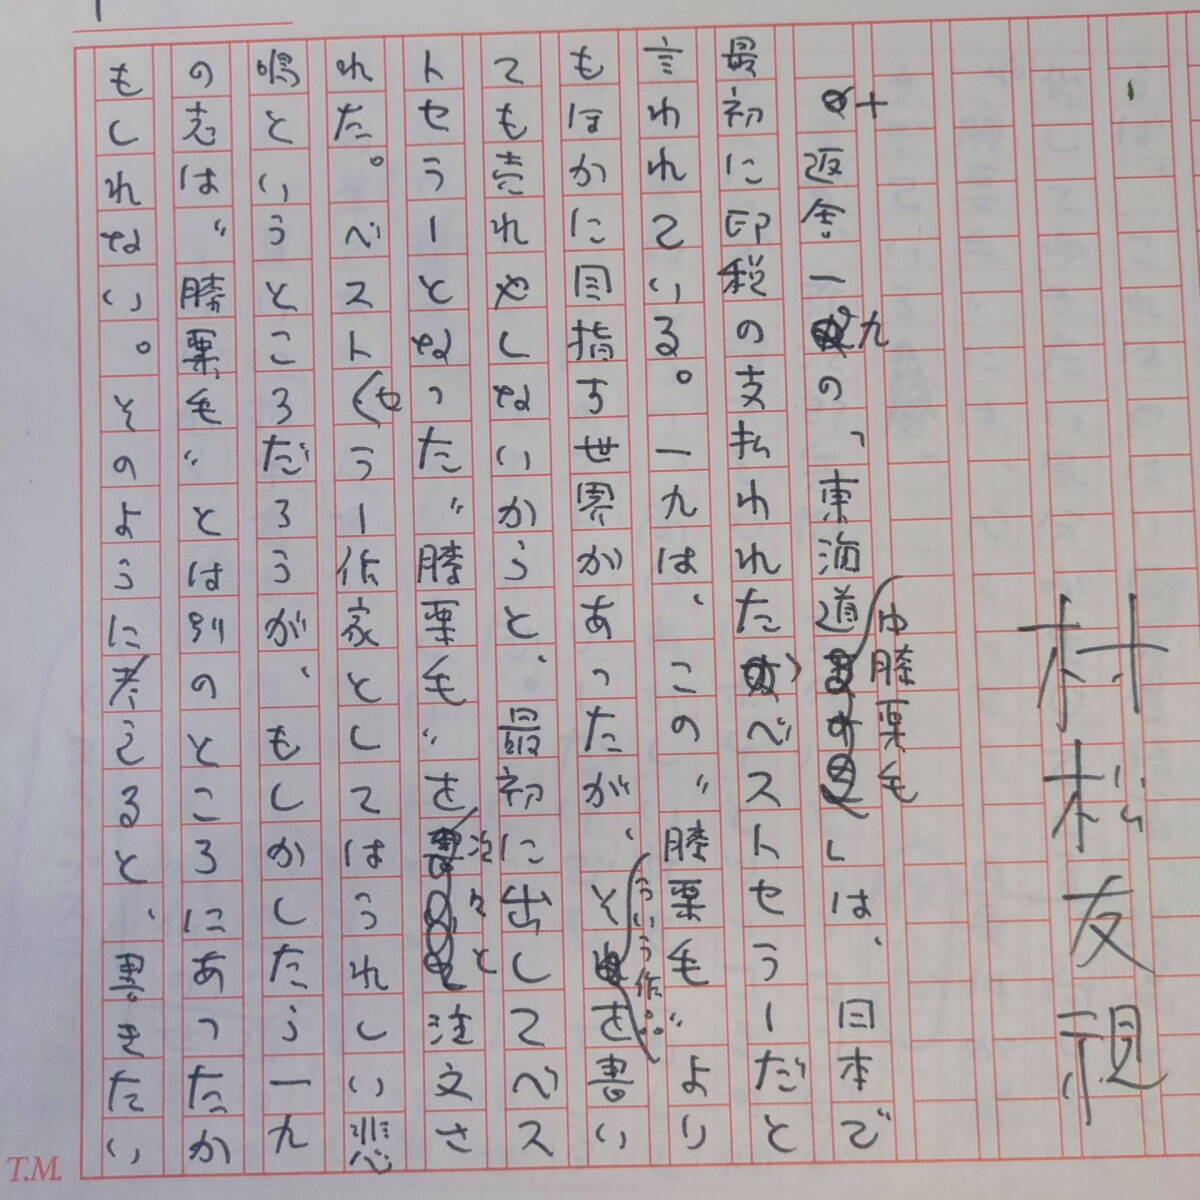 村松友視
十返舎一九の「東海道中膝栗毛」は、日本で
最初に印税の支払われたベストセラーだと
言われている。一九は、この〝膝栗毛〟より
もほかに目指す世界があったが、そういう作を書い
ても売れやしないからと、最初に出してベス
トセラーとなった〝膝栗毛〟を次々と注文さ
れた。ベストセラー作家としてはうれしい悲
鳴というところだろうが、もしかしたら一九
の志は〝膝栗毛〟とは別のところにあったか
もしれない。そのように考えると、書きたい
T.M.